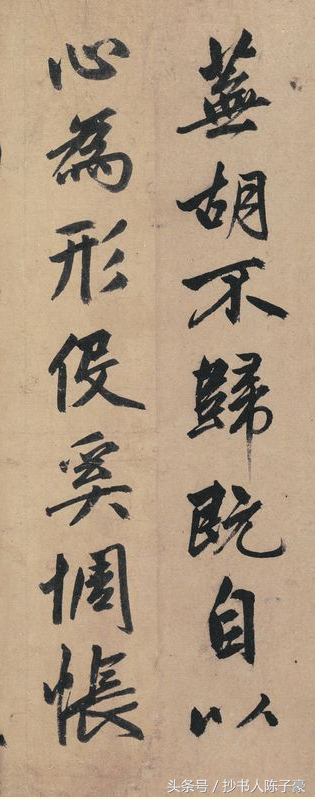 蕪胡不歸既自以
心為形役奚惆悵
头条号／抄书人陈子豪